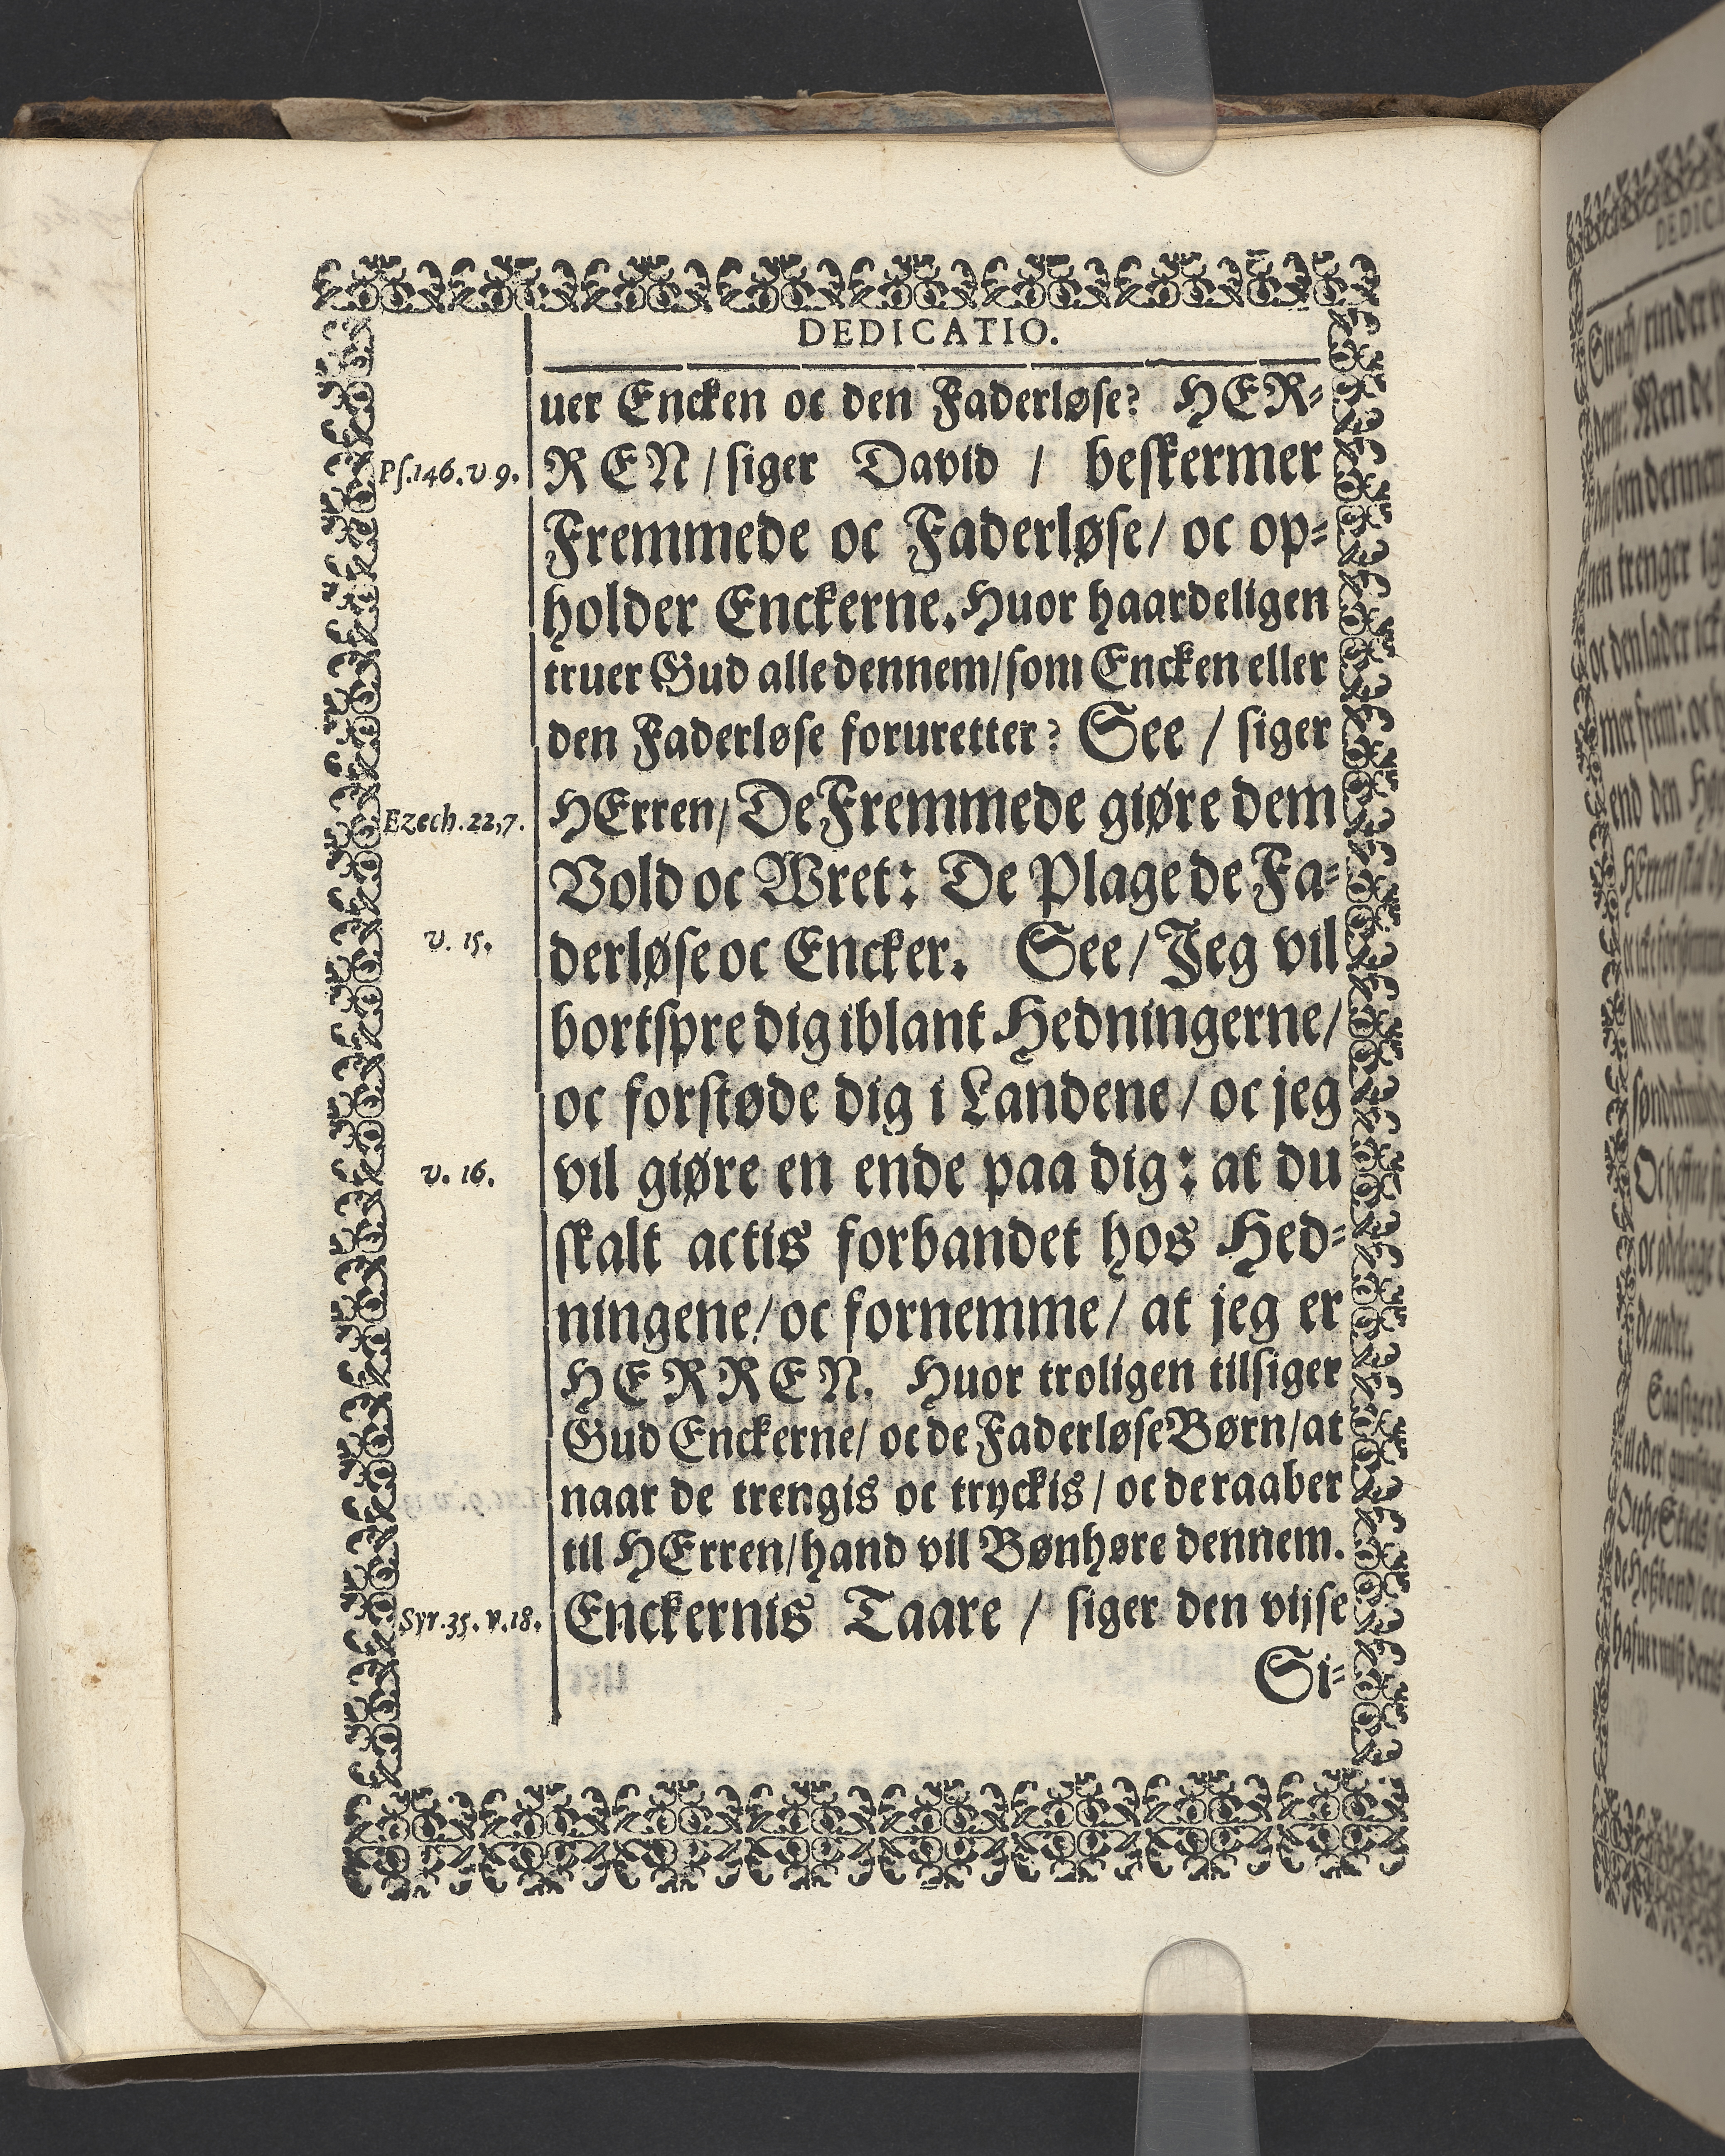 DEDICATIO.
uer Encken oc den Faderløse? HER-
Ps.146.v 9. REN / siger David / beskermer
Fremmede oc Faderløse / oc op-
holder Enckerne. Huor haardeligen
truer Gud alle dennem / som Encken eller
den Faderløse foruretter? See / siger
Ezech.22,7. HErren / De Fremmede giøre dem
Vold oc Wret: De Plage de Fa-
v. 15. derløse oc Encker. See / Jeg vil
bortspre dig iblant Hedningerne /
oc forstøde dig i Landene / oc jeg
v. 16. vil giøre en ende paa dig: at du
skalt actis forbandet hos Hed-
ningene / oc fornemme / at jeg er
HERREN. Huor troligen tilsiger
Gud Enckerne / oc de Faderløse Børn / at
naar de trengis oc tryckis / oc de raaber
til HErren / hand vil Bønhøre dennem.
Syr.35.v.18. Enckernis Taare / siger den vijse
Si-